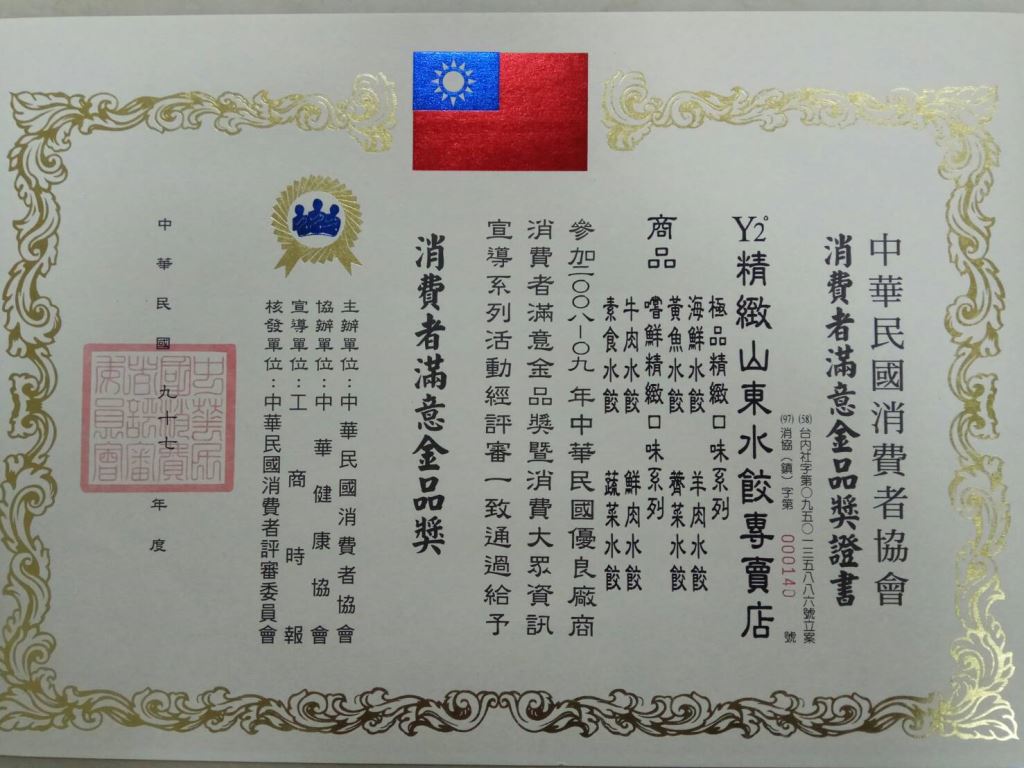 中華民國消費者協會
消費者滿意金品獎證書
(58)台內社字第〇九五〇一三五八八六號立案
(97)消協(鎮)字第000140號
Y2°精緻山東水餃專賣店
商品
極品精緻口味系列
海鮮水餃 羊肉水餃
黃魚水餃 薺菜水餃
嚐鮮精緻口味系列
牛肉水餃 鮮肉水餃
素食水餃 蔬菜水餃
參加二〇〇八-〇九年中華民國優良廠商
消費者滿意金品獎暨消費大眾資訊
宣導系列活動經評審一致通過給予
消費者滿意金品獎
主辦單位:中華民國消費者協會
協辦單位:中華健康協會
宣導單位:工商時報
核發單位:中華民國消費者評審委員會
中華民國九十七年度